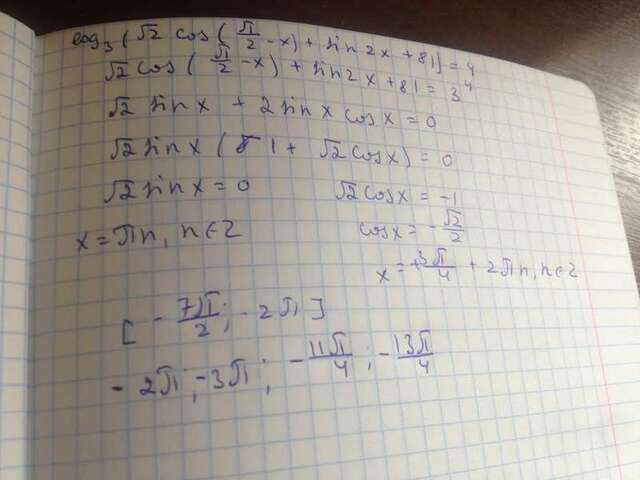 log₃(√2 cos(π/2 - x) + sin2x + 81) = 4
√2 cos(π/2 - x) + sin2x + 81 = 3⁴
√2 sinx + 2sinx cosx = 0
√2 sinx (1 + √2 cosx) = 0
√2 sinx = 0 √2 cosx = -1
x = πn, n∈Z cosx = -√2/2
x = ±3π/4 + 2πn, n∈Z
[-7π/2; -2π]
-2π; -3π; -11π/4; -13π/4